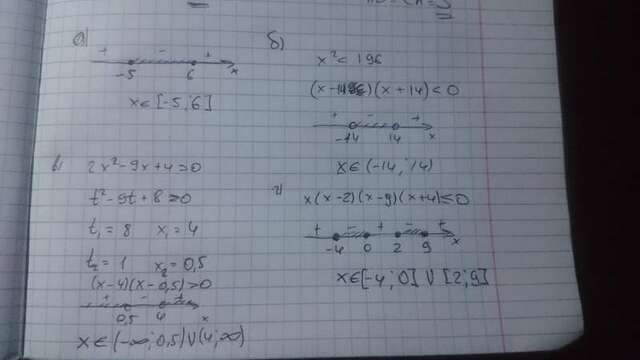 а)
+ - +
-5 6 x
x∈[-5;6]
б)
x² < 196
(x-14)(x+14)<0
+ - +
-14 14 x
x∈(-14;14)
в)
2x²-9x+4>0
t²-9t+8>0
t₁=8 x₁=4
t₂=1 x₂=0,5
(x-4)(x-0,5)>0
+ - +
0,5 4 x
x∈(-∞;0,5)∪(4;∞)
г)
x(x-2)(x-9)(x+4)≤0
+ - + - +
-4 0 2 9 x
x∈[-4;0]∪[2;9]